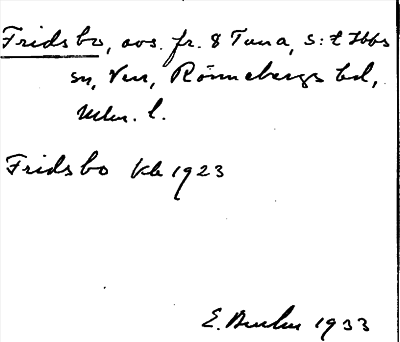 Fridsbo, avs. fr. 8 Tuna, S:t Ibbs
sn, Ven, Rönnebergs hd,
Mlm. l.
Fridsbo kb 1923
E. 1933